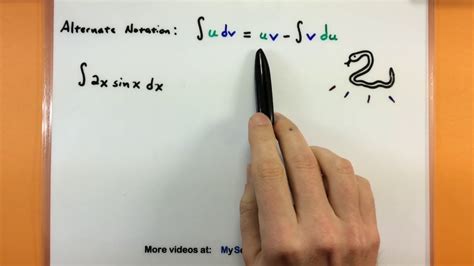 Alternate Notation: ∫u dv = uv - ∫v du
∫2x sin x dx
More videos at: